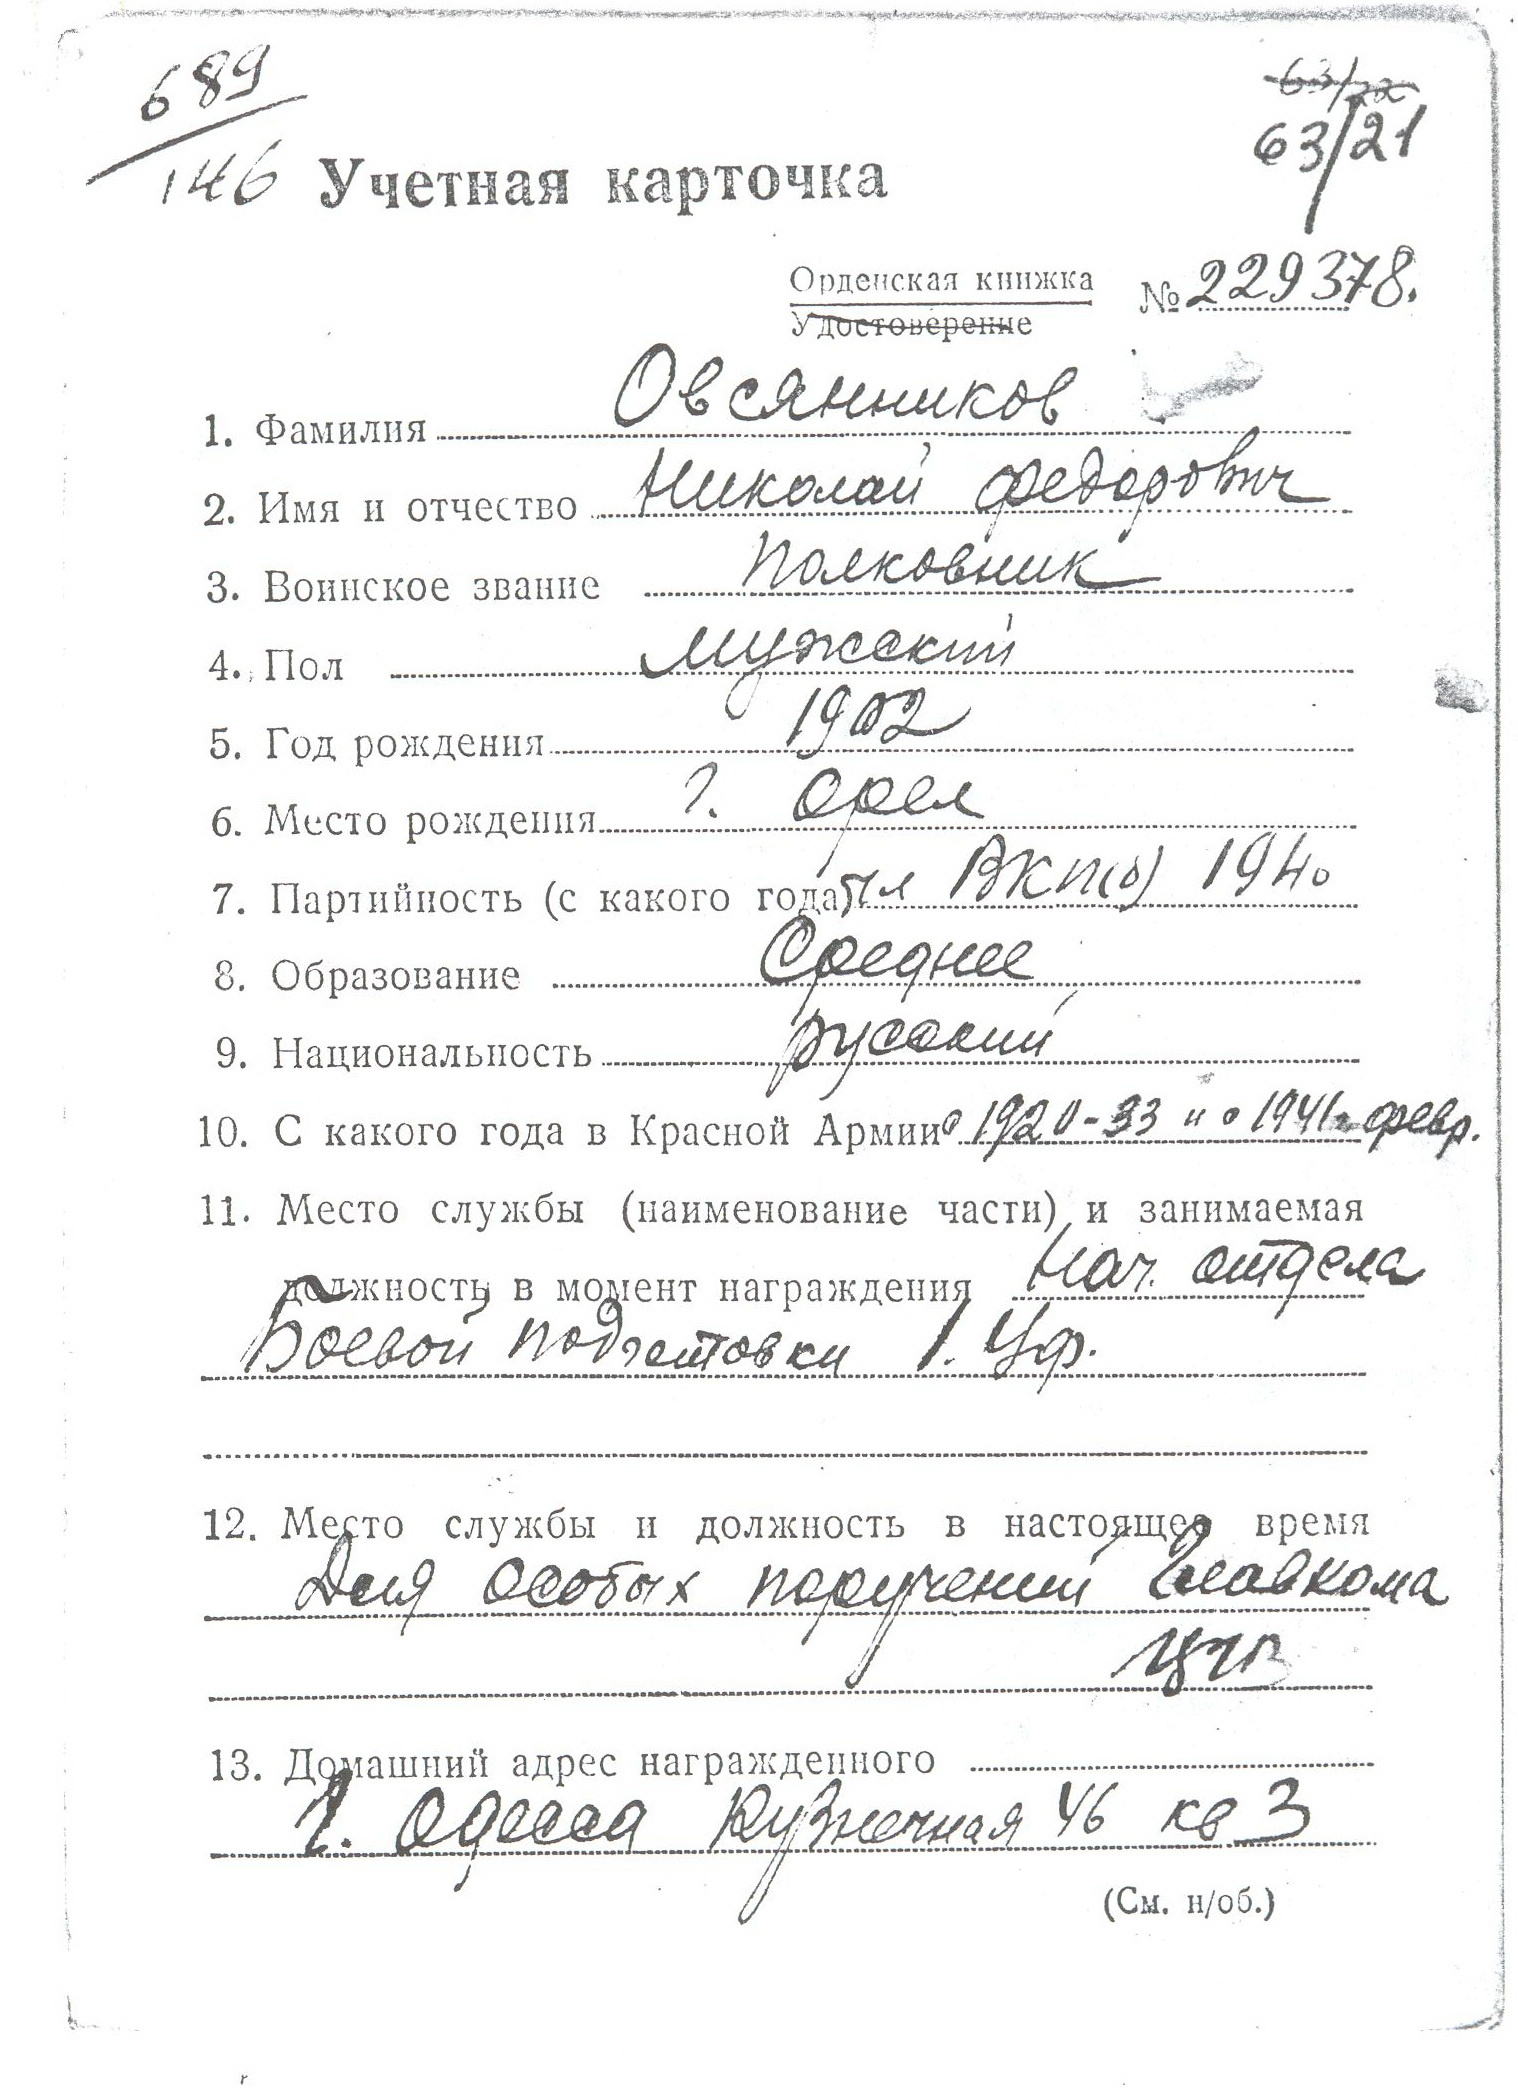 689
146
63/22
63/21
Учетная карточка
Орденская книжка № 229378.
Удостоверение
1. Фамилия Овсянников
2. Имя и отчество Николай Федорович
3. Воинское звание Полковник
4. Пол мужской
5. Год рождения 1902
6. Место рождения г. Орел
7. Партийность (с какого года) чл ВКП(б) 1940
8. Образование Среднее
9. Национальность русский
10. С какого года в Красной Армии с 1920-33 и с 1941г февр.
11. Место службы (наименование части) и занимаемая
должность в момент награждения Нач. отдела
Боевой подготовки 1. Уф.
12. Место службы и должность в настоящее время
Для особых поручений Главкома
ЦГВ
13. Домашний адрес награжденного
г. Одесса Кузнечная 46 кв 3
(См. н/об.)